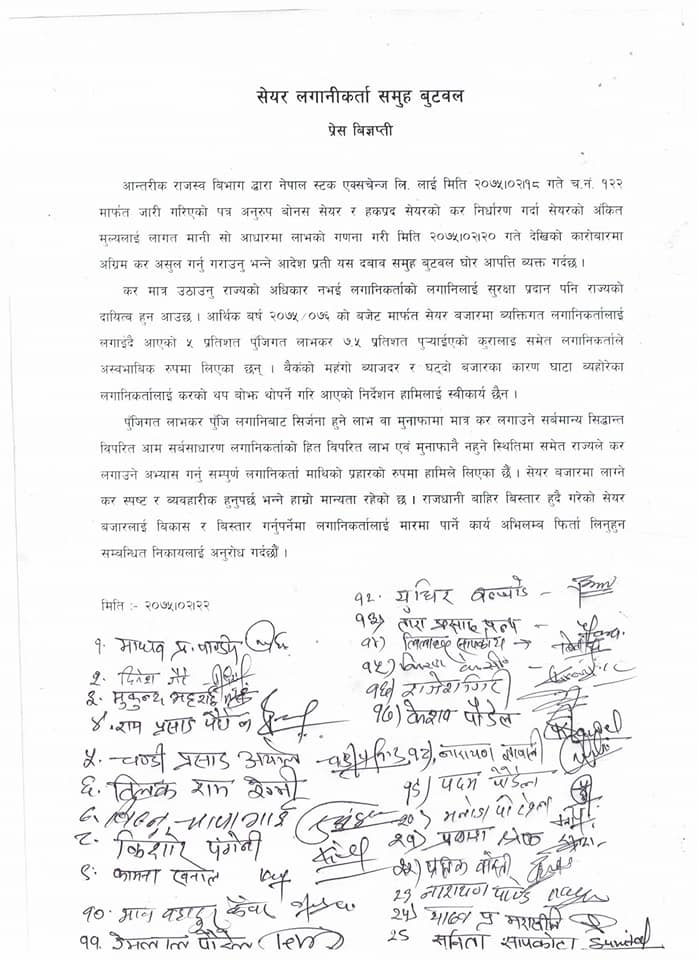 सेयर लगानीकर्ता समुह बुटवल
प्रेस बिज्ञप्ती
आन्तरीक राजस्व बिभाग द्वारा नेपाल स्टक एक्सचेन्ज लि. लाई मिति २०७५।०२।१८ गते च.नं. १२२
मार्फत जारी गरिएको पत्र अनुरुप बोनस सेयर र हकप्रद सेयरको कर निर्धारण गर्दा सेयरको अंकित
मुल्यलाई लागत मानी सो आधारमा लाभको गणना गरी मिति २०७५।०२।२० गते देखिको कारोबारमा
अग्रिम कर असुल गर्नु गराउनु भन्ने आदेश प्रती यस दबाब समुह बुटवल घोर आपत्ति व्यक्त गर्दछ ।
कर मात्र उठाउनु राज्यको अधिकार नभई लगानिकर्ताको लगानिलाई सुरक्षा प्रदान पनि राज्यको
दायित्व हुन आउछ । आर्थिक बर्ष २०७५/०७६ को बजेट मार्फत सेयर बजारमा ब्यक्तिगत लगानिकर्तालाई
लगाइदै आएको ५ प्रतिशत पुंजिगत लाभकर ७.५ प्रतिशत पुर्‍याईएको कुरालाइ समेत लगानिकर्ताले
अस्वभाबिक रुपमा लिएका छन् । बैकंको महंगो ब्याजदर र घट्दो बजारका कारण घाटा ब्यहोरेका
लगानिकर्तालाई करको थप बोझ थोपर्ने गरि आएको निर्देशन हामिलाई स्वीकार्य छैन ।
पुंजिगत लाभकर पुंजि लगानिबाट सिर्जना हुने लाभ वा मुनाफामा मात्र कर लगाउने सर्बमान्य सिद्धान्त
विपरित आम सर्बसाधारण लगानिकर्ताको हित विपरित लाभ एवं मुनाफानै नहुने स्थितिमा समेत राज्यले कर
लगाउने अभ्यास गर्नु सम्पुर्ण लगानिकर्ता माथिको प्रहारको रुपमा हामिले लिएका छौं । सेयर बजारमा लाग्ने
कर स्पष्ट र ब्यवहारीक हुनुपर्छ भन्ने हाम्रो मान्यता रहेको छ । राजधानी बाहिर बिस्तार हुदै गरेको सेयर
बजारलाई बिकास र बिस्तार गर्नुपर्नेमा लगानिकर्तालाई मारमा पार्ने कार्य अभिलम्ब फिर्ता लिनुहुन
सम्बन्धित निकायलाई अनुरोध गर्दछौं ।
मिति :- २०७५।०२।२२
१. माधव प्र. पाण्डे
२. दिपेश
३. मुकुन्द भट्टराई
४. राम प्रसाद पौडेल
५. चण्डी प्रसाद अर्याल
६. तिलक राम रेग्मी
७.
८. किशोर पंगेनी
९. कामना खनाल
१०. मान बहादुर
११. पौडेल
१२. युधिर
१३) तारा प्रसाद
१४)
१५)
१६) राजेश गिरी
१७) केशव पौडेल
१८) नारायण ज्ञवाली
१९) पदम पौडेल
२०) मनोज पौडेल
२१)
२२)
२३ नारायण पाण्डे
२४)
25 सविता सापकोटा